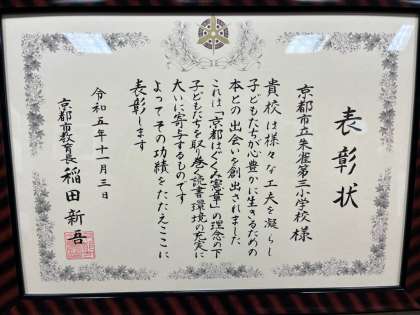 表彰状
京都市立朱雀第三小学校 様
貴校は様々な工夫を凝らし
子どもたちが心豊かに生きるための
本との出会いを創出されました
これは「京都はぐくみ憲章」の理念の下
子どもたちを取り巻く読書環境の充実に
大いに寄与するものです
よってその功績をたたえここに
表彰します
令和五年十一月三日
京都市教育長 稲田新吾